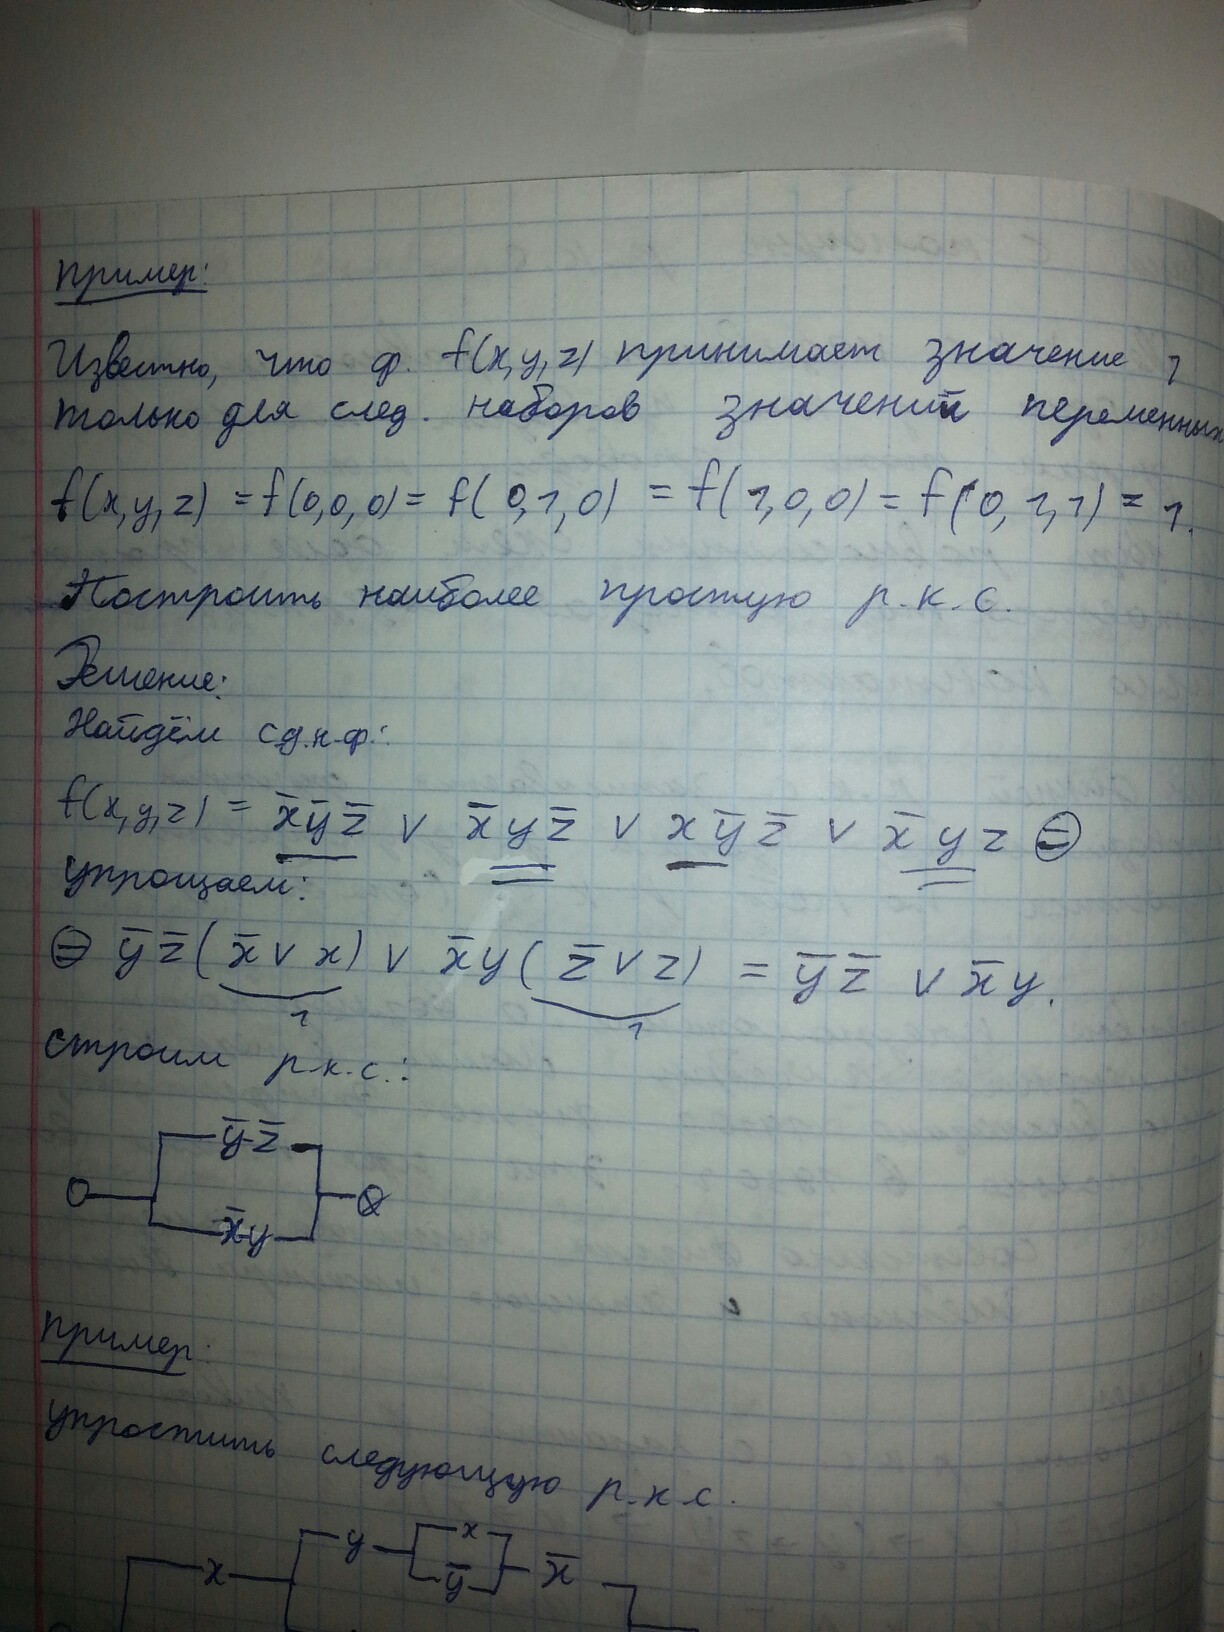 Пример:
Известно, что ф. f(x,y,z) принимает значение 1
только для след. наборов значений переменных
f(x,y,z) = f(0,0,0) = f(0,1,0) = f(1,0,0) = f(0,1,1) = 1.
Построить наиболее простую р.к.с.
Решение:
Найдём с.д.н.ф.:
f(x,y,z) = x̄ȳz̄ ∨ x̄yz̄ ∨ xȳz̄ ∨ x̄yz ⊜
упрощаем:
⊜ ȳz̄(x̄ ∨ x) ∨ x̄y(z̄ ∨ z) = ȳz̄ ∨ x̄y.
1 1
строим р.к.с.:
ȳz̄
x̄y
Пример:
упростить следующую р.к.с.
x y x x̄
ȳ